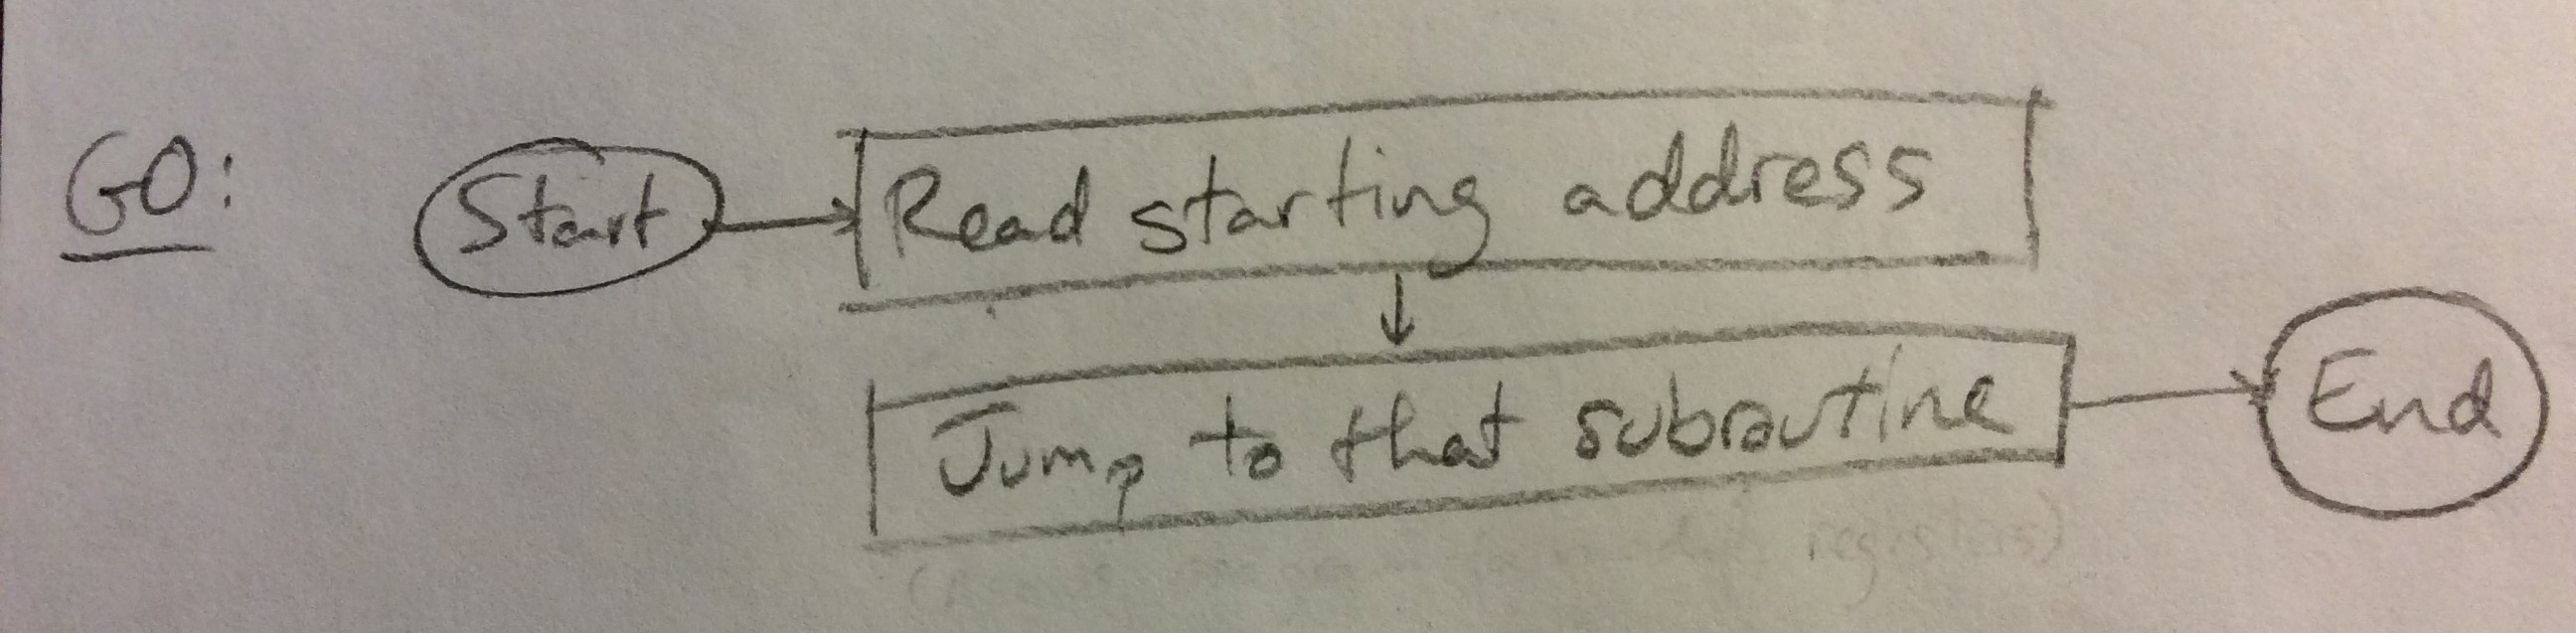 GO:
Start
Read starting address
Jump to that subroutine
End
registers)